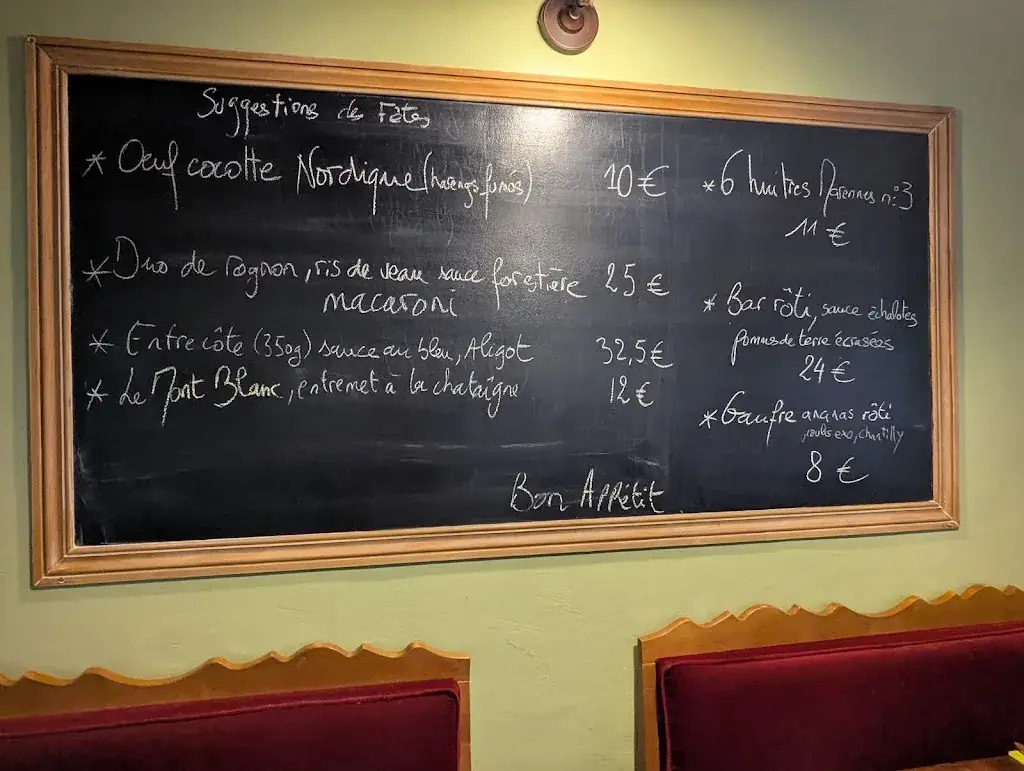 Suggestions des Fêtes
* Oeuf cocotte Nordique (harengs fumés) 10 €
* Duo de rognon, ris de veau sauce forestière 25 €
macaroni
* Entrecôte (350g) sauce au bleu, Aligot 32,5 €
* Le Mont Blanc, entremet à la chataigne 12 €
Bon Appétit
* 6 huitres Marennes n°3
11 €
* Bar rôti, sauce échalotes
pommes de terre écrasées
24 €
* Gaufre ananas rôti
, exo, chantilly
8 €